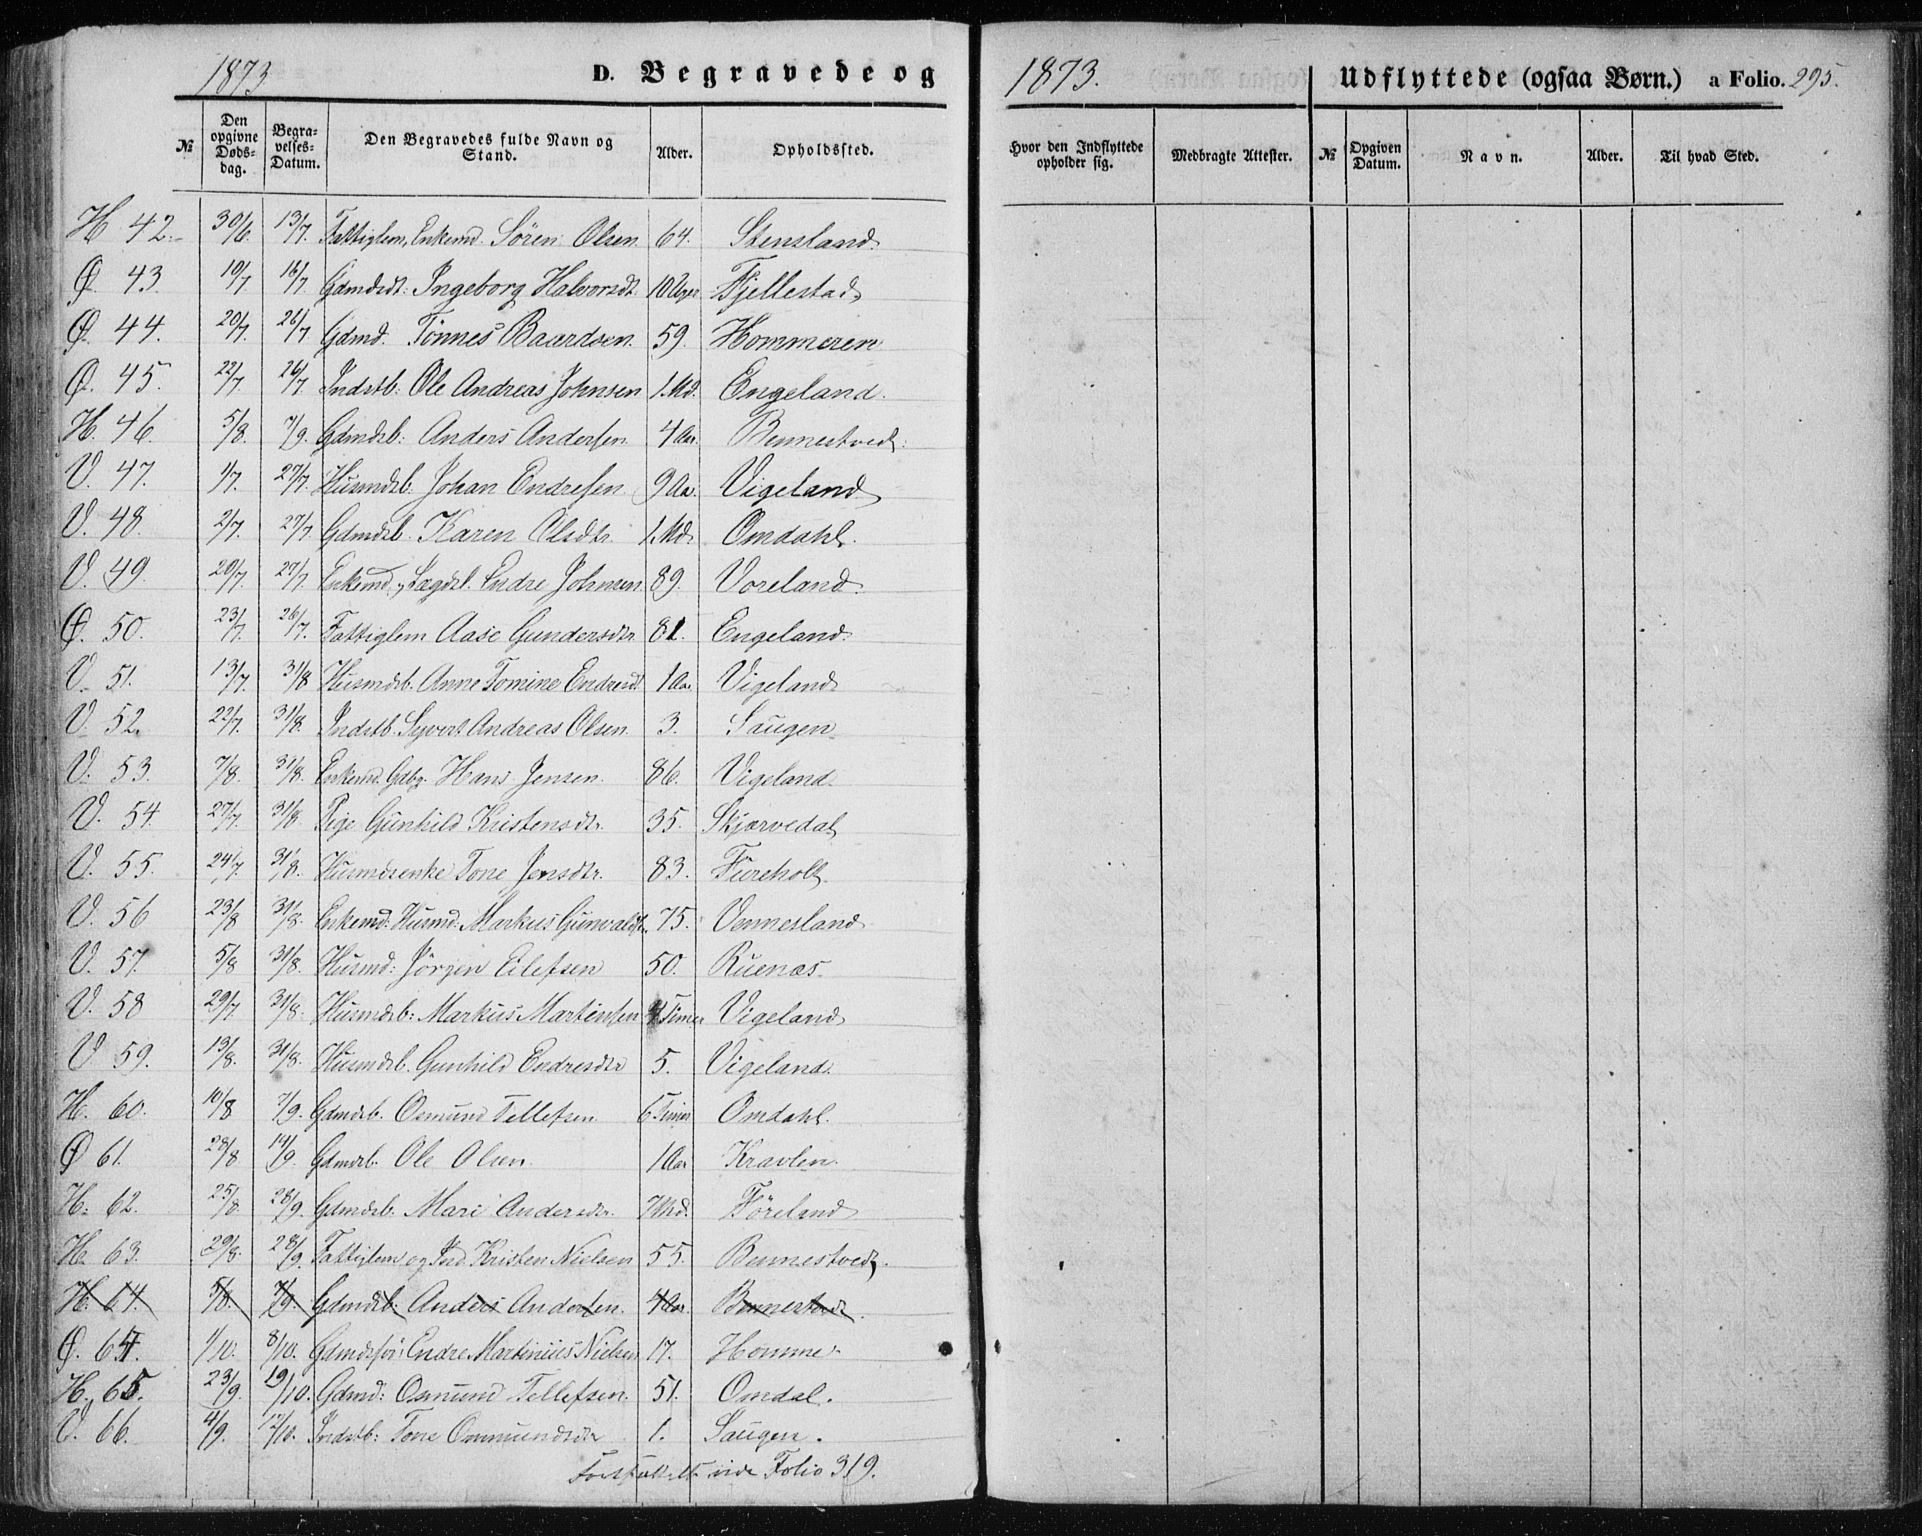 1873 D. Begravede og
№ Den opgivne Døds-dag. Begra-velses-Datum. Den Begravedes fulde Navn og Stand. Alder. Opholdssted.
H 42. 30/6 13/7. Fattiglem, Enkemd. Sören Olsen 64. Stensland
Ø. 43. 10/7 16/7. Gdmdsdt: Ingeborg Halvorsdt. 10 Uger Fjellestad
Ø. 44. 20/7. 26/7 Gdmd. Tönnes Baardsen. 59. Hommeren
Ø. 45. 22/7 26/7 Indstb: Ole Andreas Johnsen 1. Md. Engeland.
H. 46. 5/8. 7/9. Gdmdsb: Anders Andersen 4 Aar. Bennestvedt.
V. 47. 1/7. 27/7. Husmdsb. Johan Endresen 9 Aa. Vigeland
V. 48. 2/7. 27/7 Gdmdsb. Karen Olsdtr. 1. Md. Omdahl.
V. 49. 20/7. 27/7 Enkemd., Lægdsl. Endre Johnsen. 89. Voreland.
Ø. 50. 23/7. 26/7. Fattiglem Aase Gundersdtr. 81. Engeland.
V. 51. 13/7. 31/8 Husmdsb. Anne Tomine Endresdt 1 Aar Vigeland
V. 52. 22/7. 31/8. Indstb. Syvert Andreas Olsen. 3. Saugen
V. 53. 7/8. 31/8. Enkemd. Gdbg. Hans Jensen. 86. Vigeland.
V. 54. 27/7. 31/8 Pige Gunhild Kristensdtr. 35. Skjærvedal
V. 55. 24/7. 31/8. Husmdsenke Tone Jensdtr. 83. Fureholt.
V. 56 23/8 31/8. Enkemd: Husmd: Markus Gunvalds. 75. Vennesland
V. 57. 5/8 31/8. Husmd: Jörgen Eilefsen 50. Ruenæs.
V. 58 29/7 31/8. Husmdsb: Markus Martinsen 4 Timer Vigeland
V 59. 13/8. 31/8. Husmdsb. Gunhild Endresdtr 5. Vigeland.
H. 60. 10/8 7/9. Gdmdsb. Osmund Tellefsen. 6 Timer Omdahl.
Ø 61. 28/8 14/9. Gdmdsb. Ole Olsen. 1 Aar Kravlen.
H. 62. 25/8. 28/9. Gdmdsb: Mari Andersdtr. 7 Md. Föreland
H. 63. 29/8. 28/9. Fattiglem og Ind. Kristen Nielsen 55. Bennestvedt.
H. 64. 5/8. 7/9. Gdmdsb: Anders Andersen. 4 Aar. Bennestvedt.
Ø. 64. 1/10. 8/10. Gdmdsön: Endre Martinius Nielsen 17. Homme.
H. 65. 23/9. 19/10. Gdmd: Osmund Tellefsen. 51. Omdal.
V. 66. 4/9. 12/10. Indstb: Tone Ommundsdtr 1. Saugen.
Fortsættelse vide Folio 319.
1873. Udflyttede (ogsaa Børn.) a Folio. 295.
Hvor den Indflyttede opholder sig. Medbragte Attester. № Opgiven Datum. Navn. Alder. Til hvad Sted.